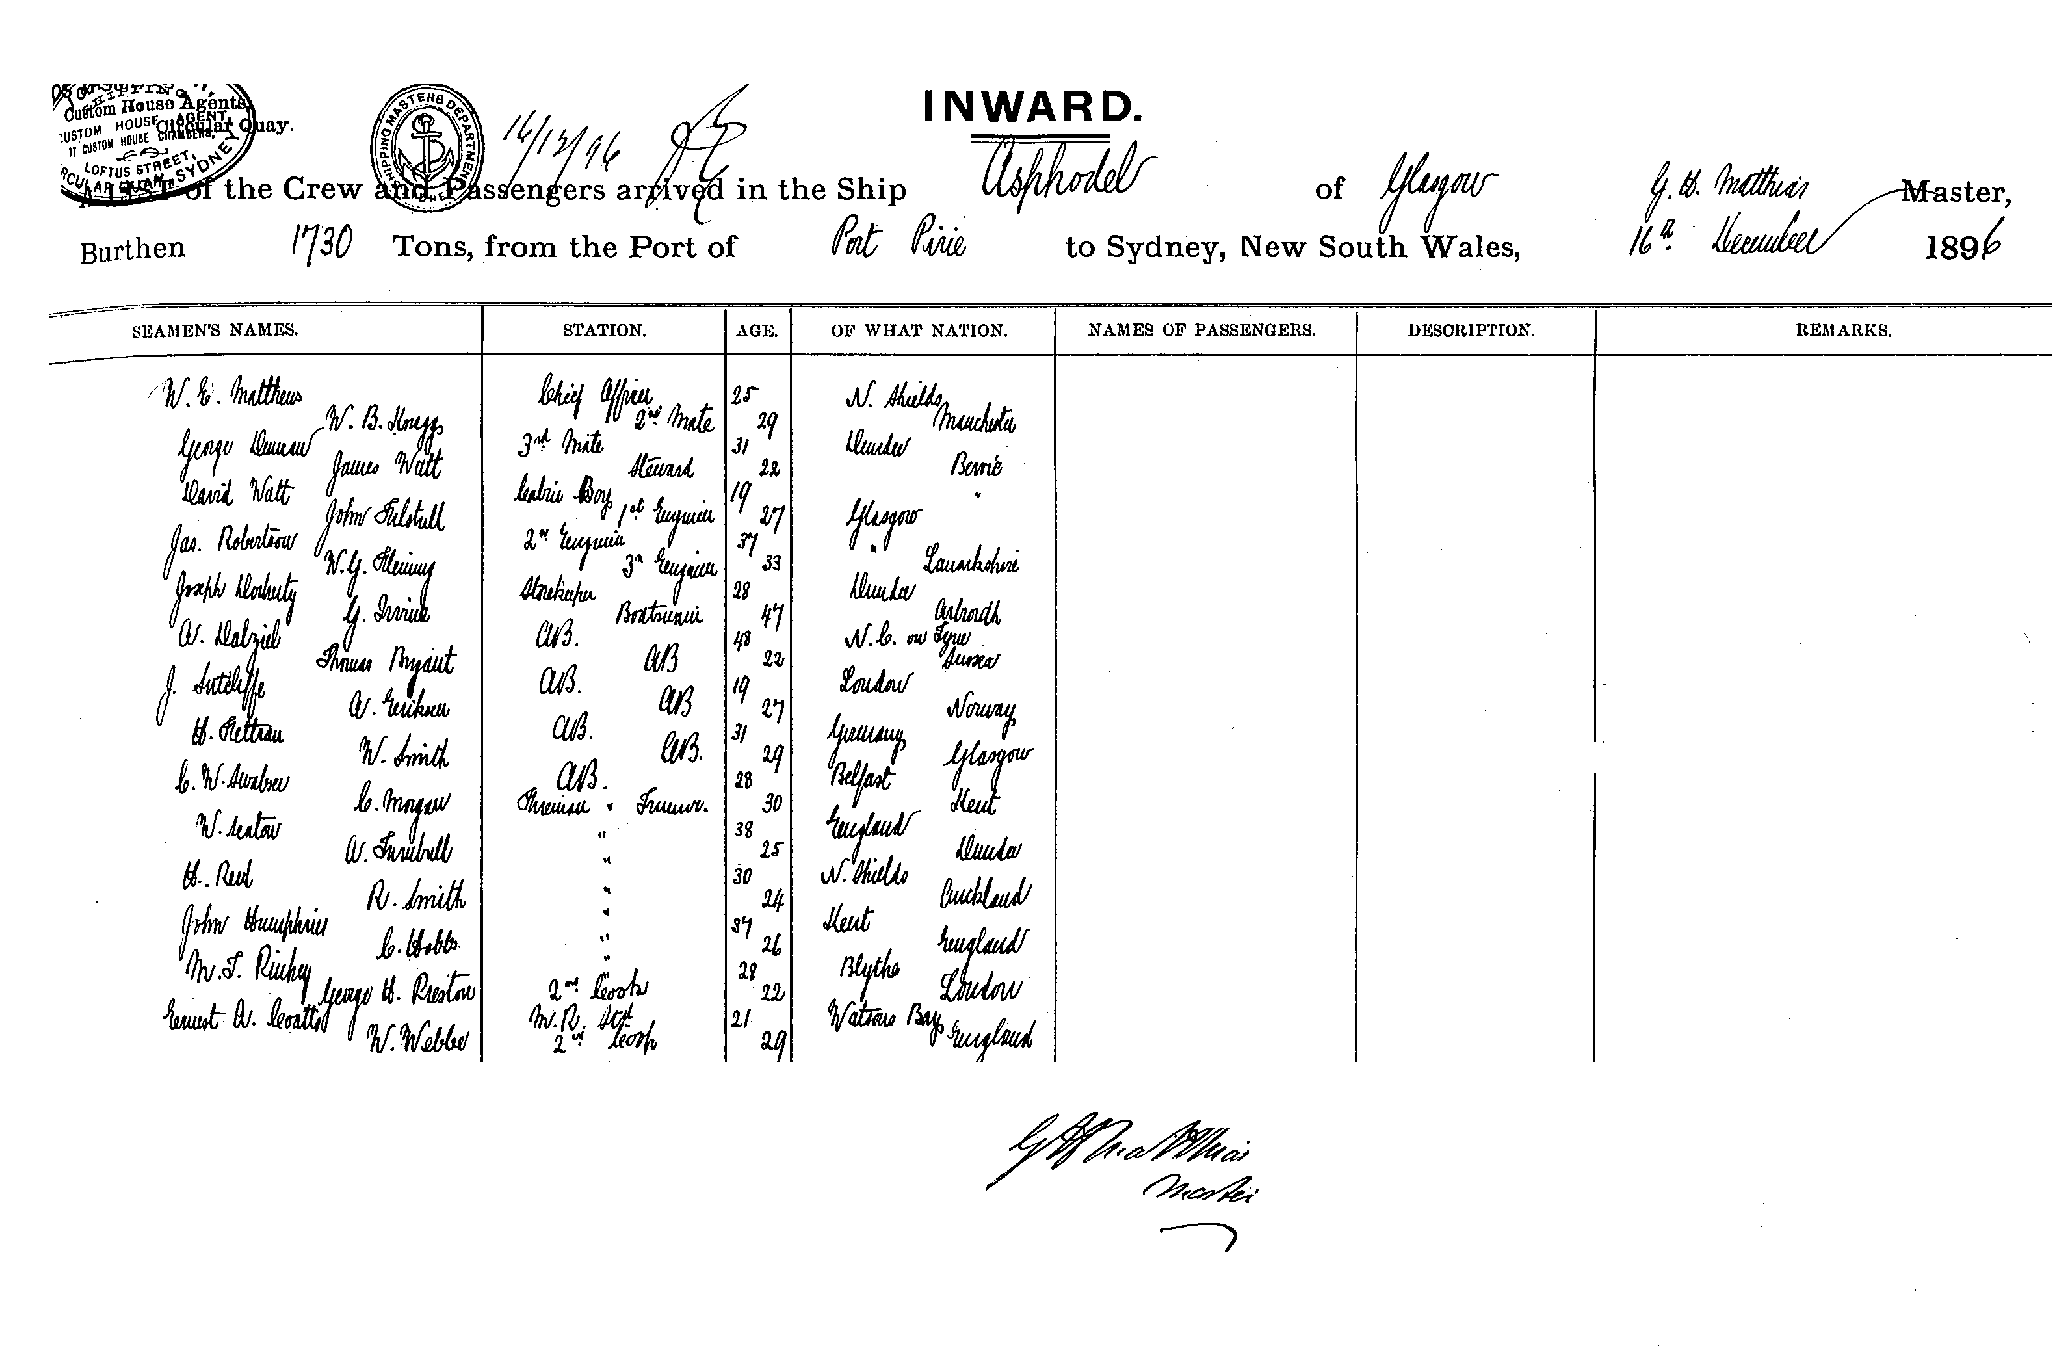 INWARD.
Custom House Agents,
Circular Quay.
CUSTOM HOUSE AGENT,
17 CUSTOM HOUSE CHAMBERS,
LOFTUS STREET,
CIRCULAR QUAY, SYDNEY
SHIPPING MASTERS DEPARTMENT
16/12/96
A LIST of the Crew and Passengers arrived in the Ship Asphodel of Glasgow G. H. Matthias Master,
Burthen 1730 Tons, from the Port of Port Pirie to Sydney, New South Wales, 16th December 1896
SEAMEN'S NAMES. STATION. AGE. OF WHAT NATION. NAMES OF PASSENGERS. DESCRIPTION. REMARKS.
W. E. Matthews Chief Officer 25 N. Shields
W. B. 2nd Mate 29 Manchester
George Duncan 3rd Mate 31 Dundee
James Watt Steward 22 Bervie
David Watt Cabin Boy 19 "
John 1st Engineer 27 Glasgow
Jas. Robertson 2nd Engineer 37 "
W. G. Fleming 3rd Engineer 33 Lanarkshire
Joseph Docherty Storekeeper 28 Dundee
G. Irvine Boatswain 47 Arbroath
A. Dalziel AB. 48 N. C. on Tyne
Thomas Bryant AB 22 Sussex
J. Sutcliffe AB. 19 London
A. Eriksen AB 27 Norway
H. AB. 31 Germany
W. Smith AB. 29 Glasgow
C. W. AB. 28 Belfast
C. Morgan Fireman & Trimmer. 30 Kent
W. Seaton " 38 England
A. Turnbull " 25 Dundee
H. Reed " 30 N. Shields
R. Smith " 24 Auckland
John Humphries " 37 Kent
C. Hobbs " 26 England
M. T. Richey " 28 Blythe
George H. Preston 2nd Cook 22 London
Ernest A. Coatts M. R. Std 21 Watsons Bay
W. Webbe 2nd Cook 29 England
G H Matthias
Master